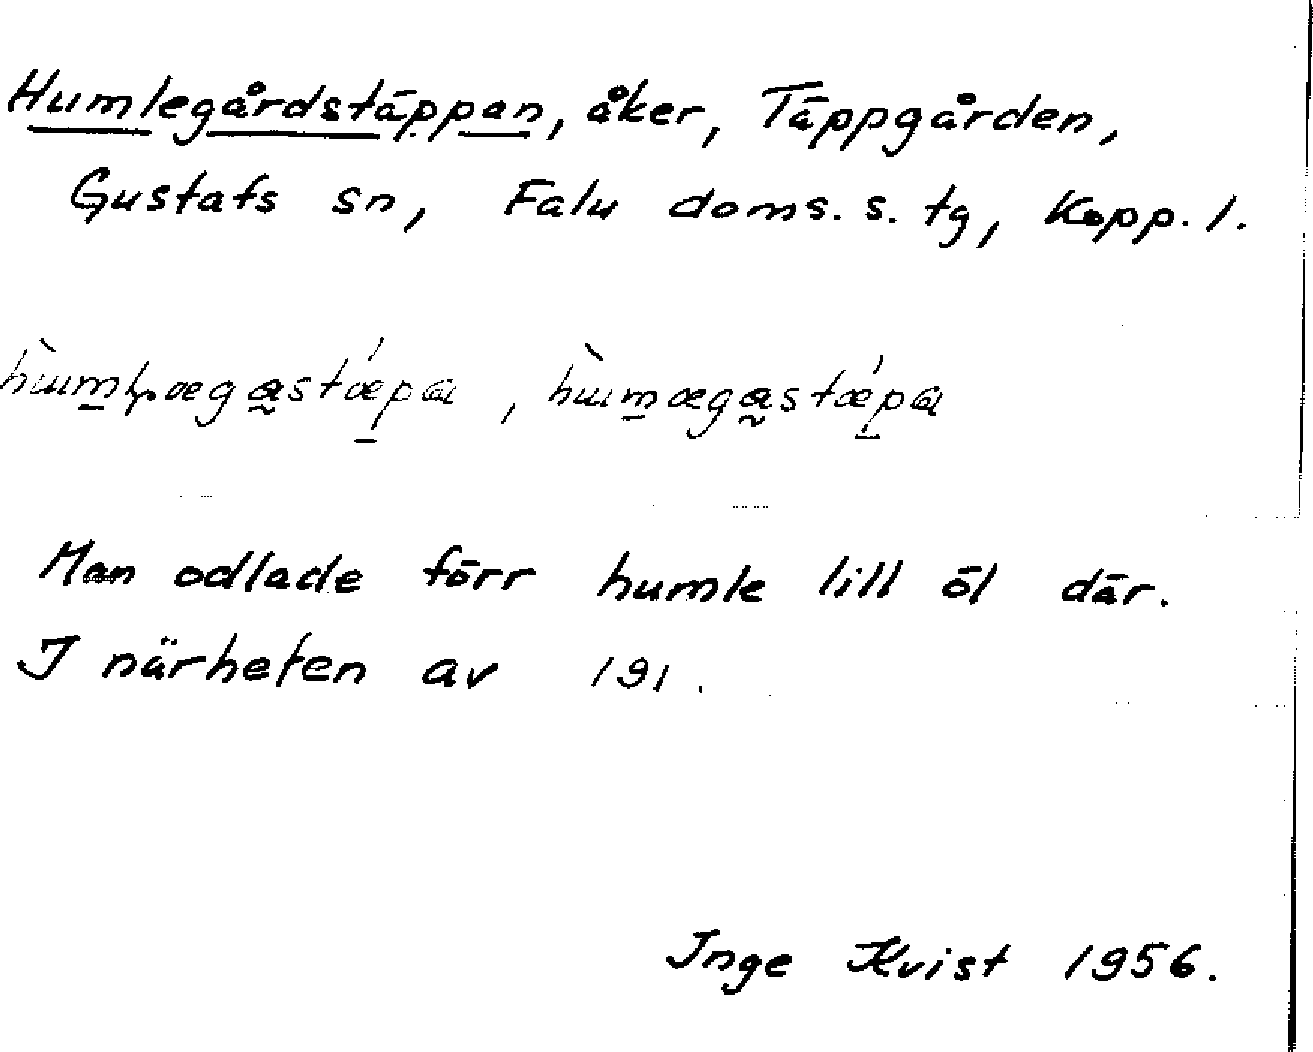 Humlegårdstäppan, åker, Täppgården,
Gustafs sn, Falu doms. s. tg, Kopp. l.
Man odlade förr humle till öl där.
I närheten av 191.
Inge Kvist 1956.